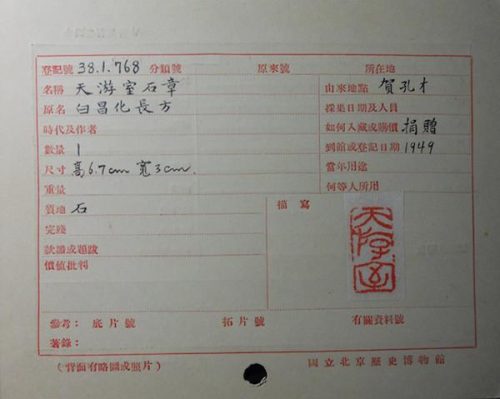 登記號 38.1.768 分類號 原來號 所在地
名稱 天游室石章 由來地點 賀孔才
原名 白昌化長方 採集日期及人員
時代及作者 如何入藏或購價 捐贈
數量 1 到館或登記日期 1949
尺寸 高6.7cm 寬3cm. 當年用途
重量 何等人所用
質地 石 描寫
完殘
款識或題跋
價值批判
天游室
參考: 底片號 拓片號 有關資料號
著錄:
(背面有略圖或照片) 國立北京歷史博物館